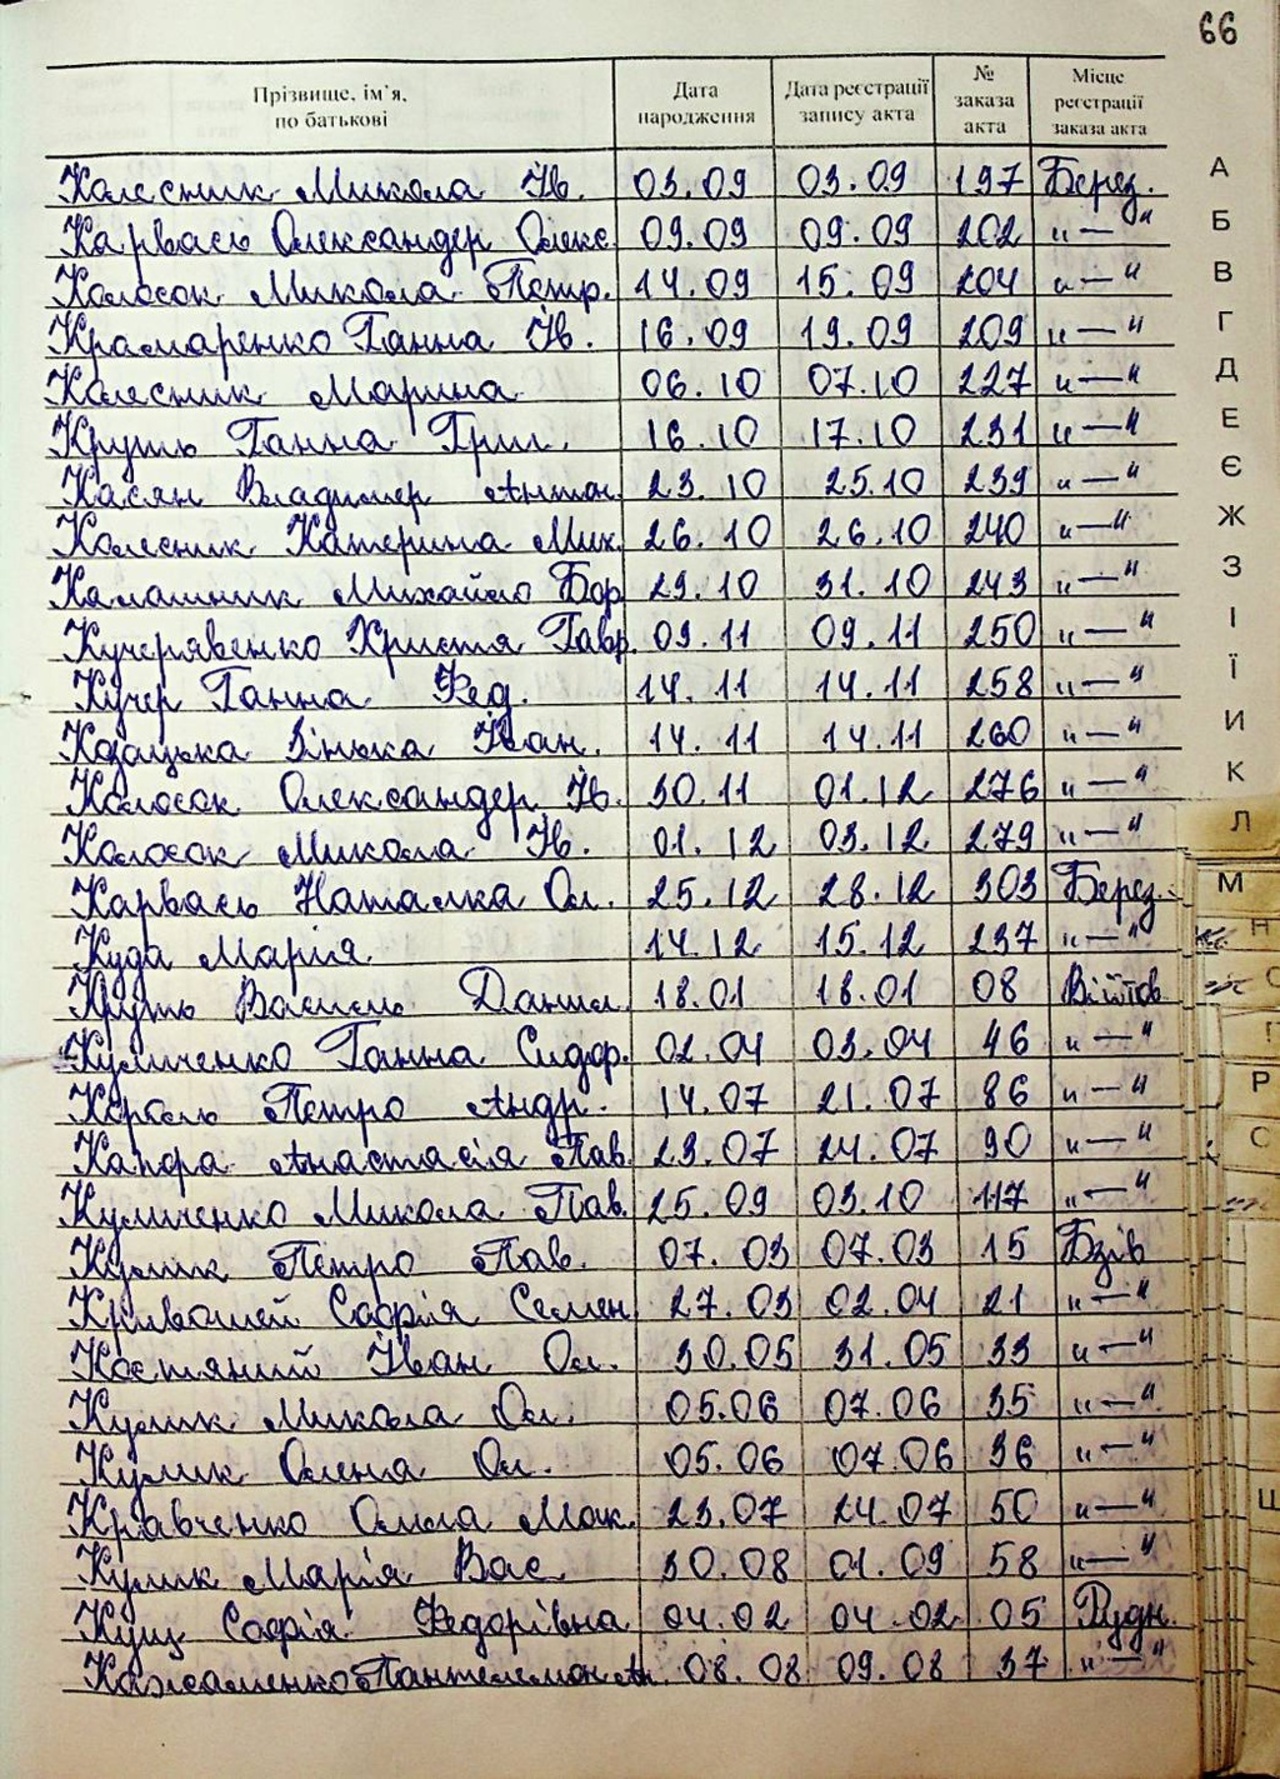 66
Прізвище, ім'я, по батькові | Дата народження | Дата реєстрації запису акта | № заказа акта | Місце реєстрації заказа акта
Колесник Микола Ів. 03.09 03.09 197 Берез.
Карвась Олександер Олекс. 09.09 09.09 202 "—"
Колосок Микола Петр. 14.09 15.09 204 "—"
Крамаренко Ганна Ів. 16.09 19.09 209 "—"
Колесник Марина 06.10 07.10 227 "—"
Круть Ганна Григ. 16.10 17.10 231 "—"
Касян Владимер Антон. 23.10 25.10 239 "—"
Колесник Катерина Мих. 26.10 26.10 240 "—"
Калашник Михайло Бор. 29.10 31.10 243 "—"
Кучерявенко Христя Гавр. 09.11 09.11 250 "—"
Кучер Ганна Фед. 14.11 14.11 258 "—"
Козацька Зінька Іван. 14.11 14.11 260 "—"
Колосок Олександер Ів. 30.11 01.12 276 "—"
Колосок Микола Ів. 01.12 03.12 279 "—"
Карвась Наталка Ол. 25.12 28.12 303 Берез.
Куда Марія 14.12 15.12 237 "—"
Круть Василь Данил. 18.01 18.01 08 Війтов
Куличенко Ганна Сидор. 02.04 03.04 46 "—"
Король Петро Андр. 14.07 21.07 86 "—"
Капфа Анастасія Пав. 23.07 24.07 90 "—"
Куличенко Микола Пав. 25.09 03.10 117 "—"
Кулик Петро Пав. 07.03 07.03 15 Бзів
Кривошей Софія Семен 27.03 02.04 21 "—"
Костяний Іван Ол. 30.05 31.05 33 "—"
Кулик Микола Ол. 05.06 07.06 35 "—"
Кулик Олена Ол. 05.06 07.06 36 "—"
Кравченко Олила Мак. 23.07 24.07 50 "—"
Кулик Марія Вас 30.08 01.09 58 "—"
Кущ Софія Федорівна 04.02 04.02 05 Рудн.
Пантелемон Ан. 08.08 09.08 37 "—"
А
Б
В
Г
Д
Е
Є
Ж
З
І
Ї
И
К
Л
М
Н
О
П
Р
С
Щ